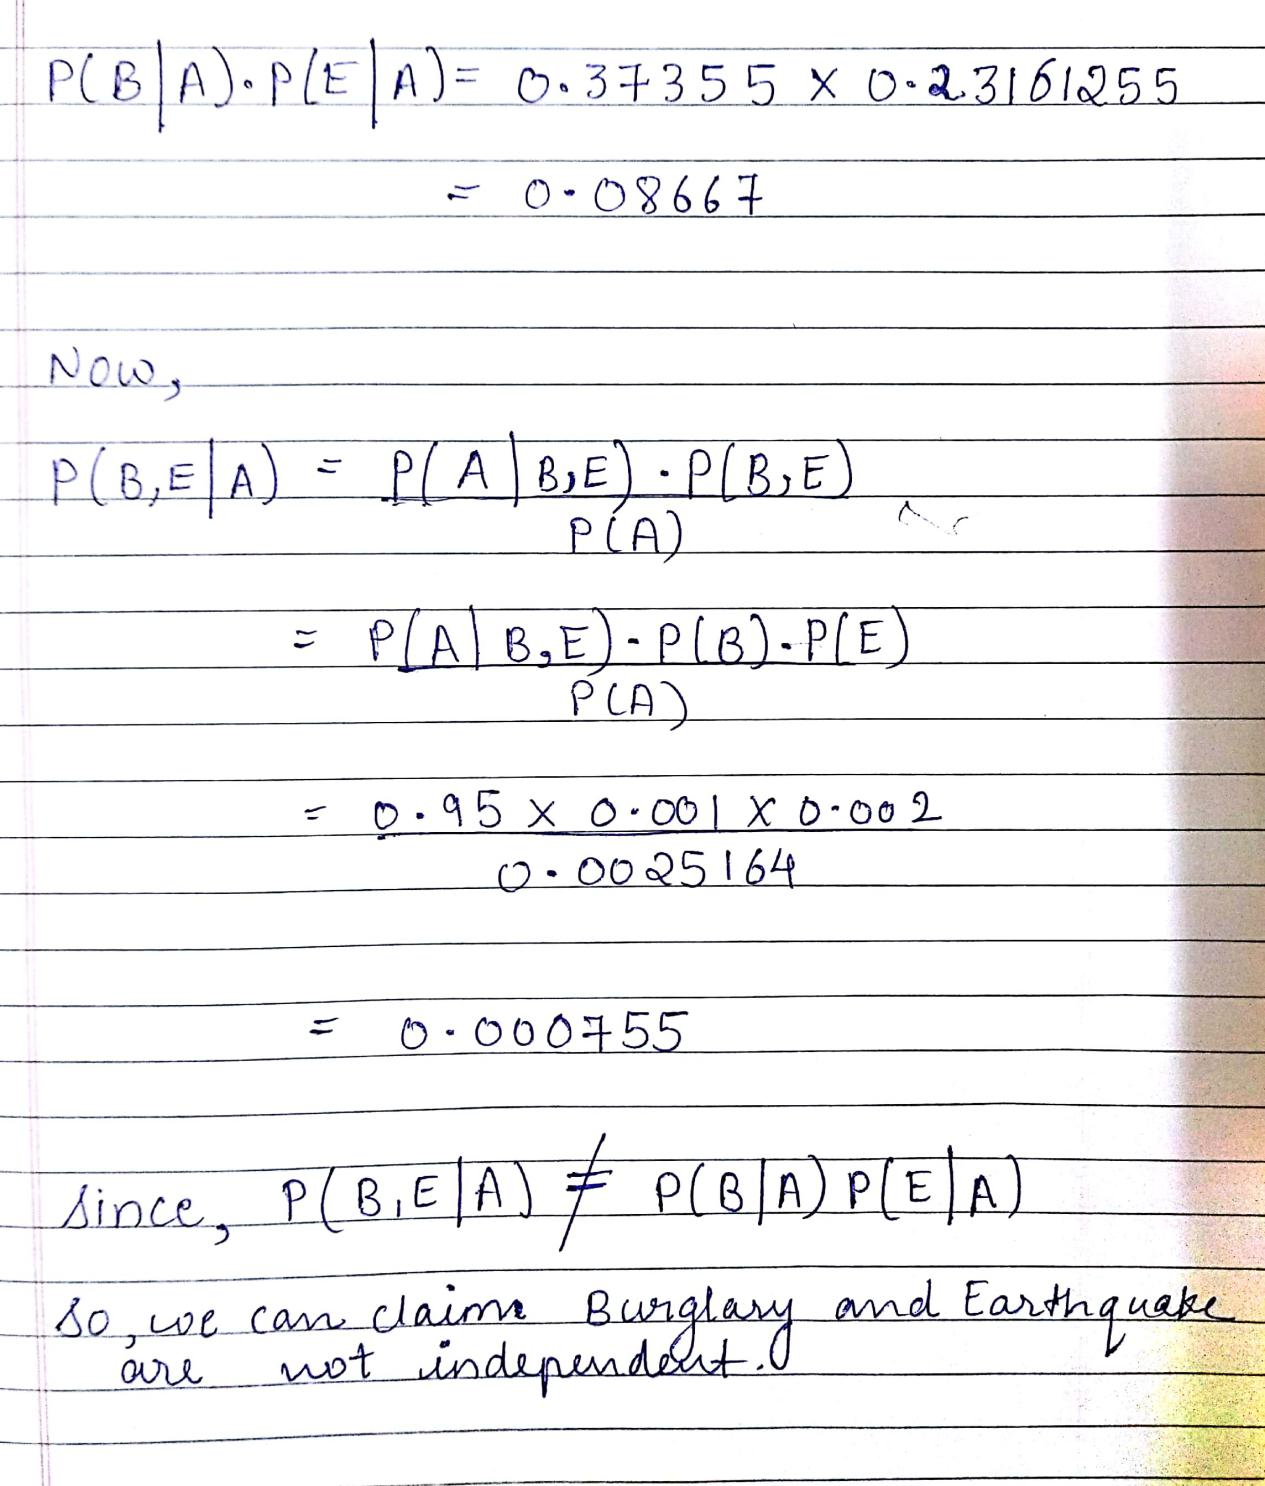 P(B|A).P(E|A) = 0.37355 x 0.23161255
= 0.08667
Now,
P(B,E|A) = P(A|B,E).P(B,E)
P(A)
= P(A|B,E).P(B).P(E)
P(A)
= 0.95 x 0.001 x 0.002
0.0025164
= 0.000755
Since, P(B,E|A) ≠ P(B|A) P(E|A)
So, we can claim Burglary and Earthquake
are not independent.